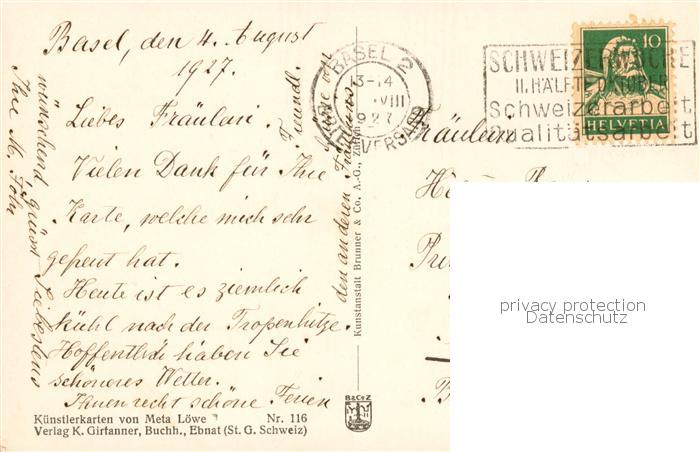 Basel, den 4. August
1927.
Liebes Fräulein!
Vielen Dank für Ihre
Karte, welche mich sehr
gefreut hat.
Heute ist es ziemlich
kühl nach der Tropenhitze.
Hoffentlich haben Sie
schöneres Wetter.
Ihnen recht schöne Ferien
wünschend grüsst Sie bestens
Ihre M.
Freundl. Grüsse von
den anderen Fräuleins.
Künstlerkarten von Meta Löwe Nr. 116
Verlag K. Girtanner, Buchh., Ebnat (St. G. Schweiz)
Kunstanstalt Brunner & Co. A.-G., Zürich
BACOZ
BASEL 2
13-14
VIII
1927
BRIEFVERSAND
SCHWEIZERWOCHE
II. HÄLFTE OKTOBER
Schweizerarbeit
Qualitätsarbeit
10
HELVETIA
Fräulein
privacy protection
Datenschutz